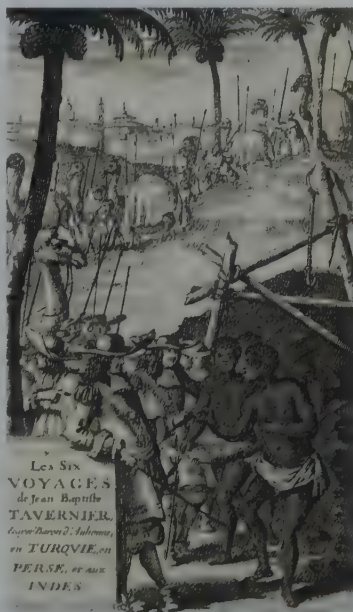 Les Six
VOYAGES
de Jean Baptiste
TAVERNIER,
Baron d'Aubonne,
en TURQVIE, en
PERSE, et aux
INDES